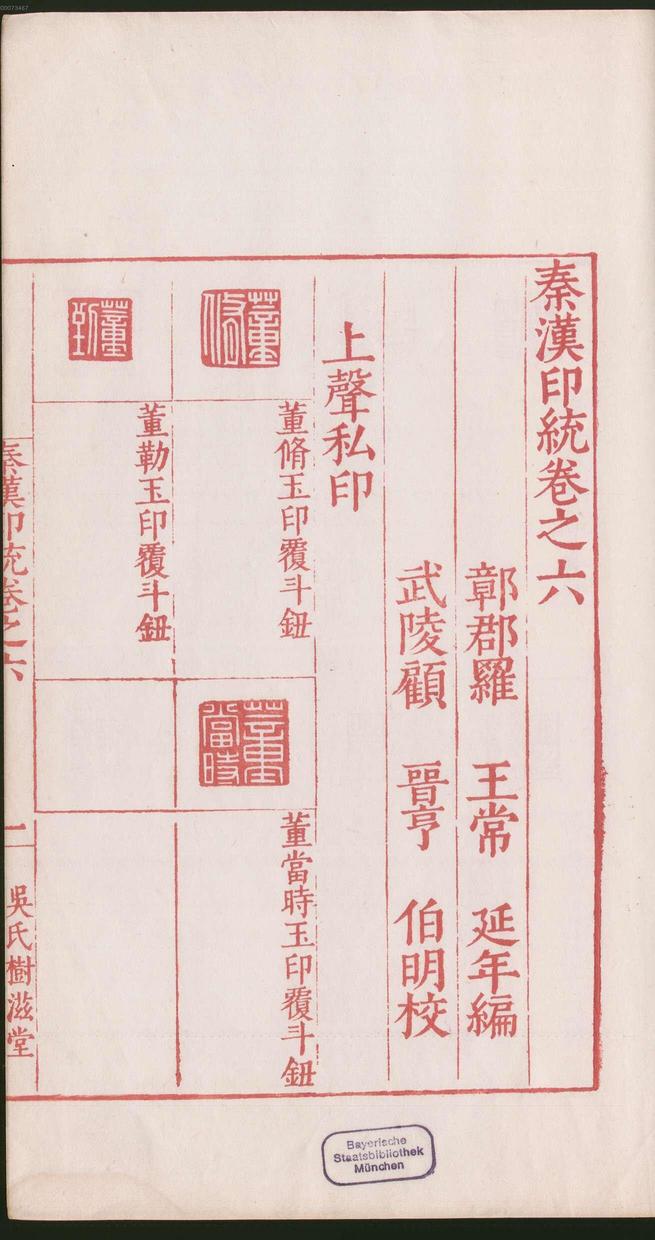 00073467
秦漢印統卷之六
鄣郡羅 王常 延年編
武陵顧 晉亨 伯明校
上聲私印
董脩
董脩玉印覆斗鈕
董當時
董當時玉印覆斗鈕
董勒
董勒玉印覆斗鈕
秦漢印統卷之六
一
吳氏樹滋堂
Bayerische
Staatsbibliothek
München